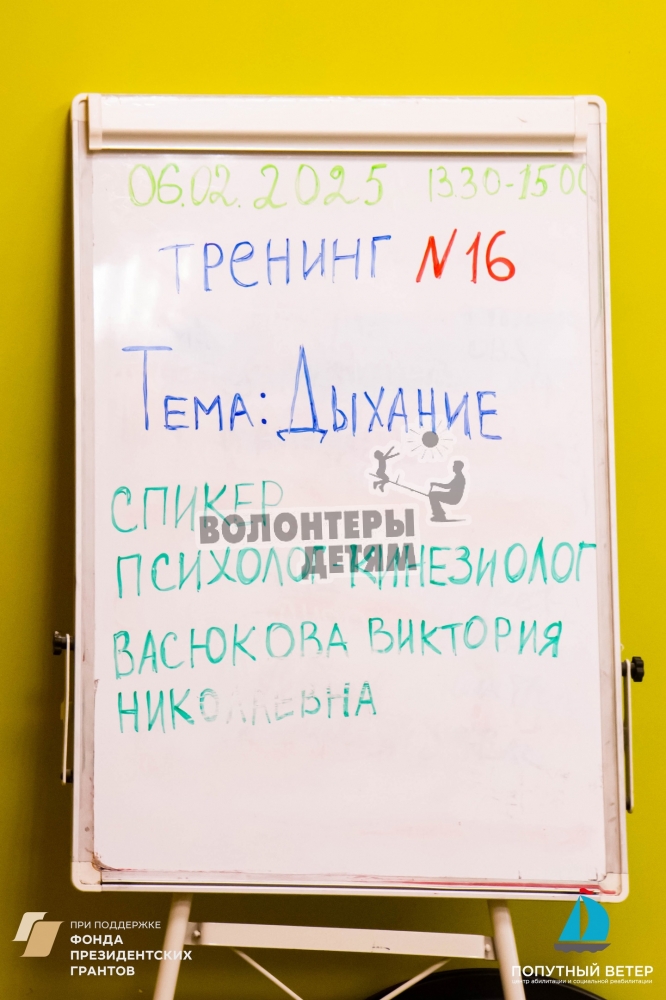 06.02.2025 13 30-15 00
ТРЕНИНГ N16
ТЕМА: ДЫХАНИЕ
СПИКЕР
ВОЛОНТЕРЫ
ДЕТЯМ
ПСИХОЛОГ-КИНЕЗИОЛОГ
ВАСЮКОВА ВИКТОРИЯ
НИКОЛАЕВНА
ПРИ ПОДДЕРЖКЕ
ФОНДА
ПРЕЗИДЕНТСКИХ
ГРАНТОВ
ПОПУТНЫЙ ВЕТЕР
центр абилитации и социальной реабилитации